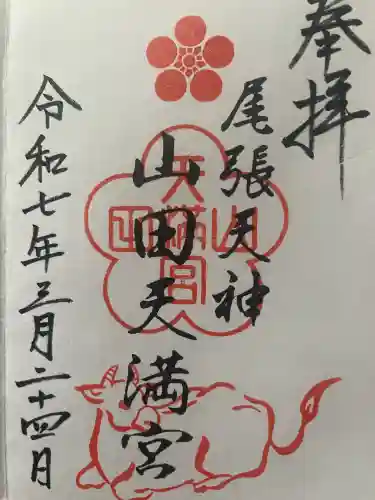 奉拝
尾張天神
山田天満宮
令和七年三月二十四日
山田天満宮